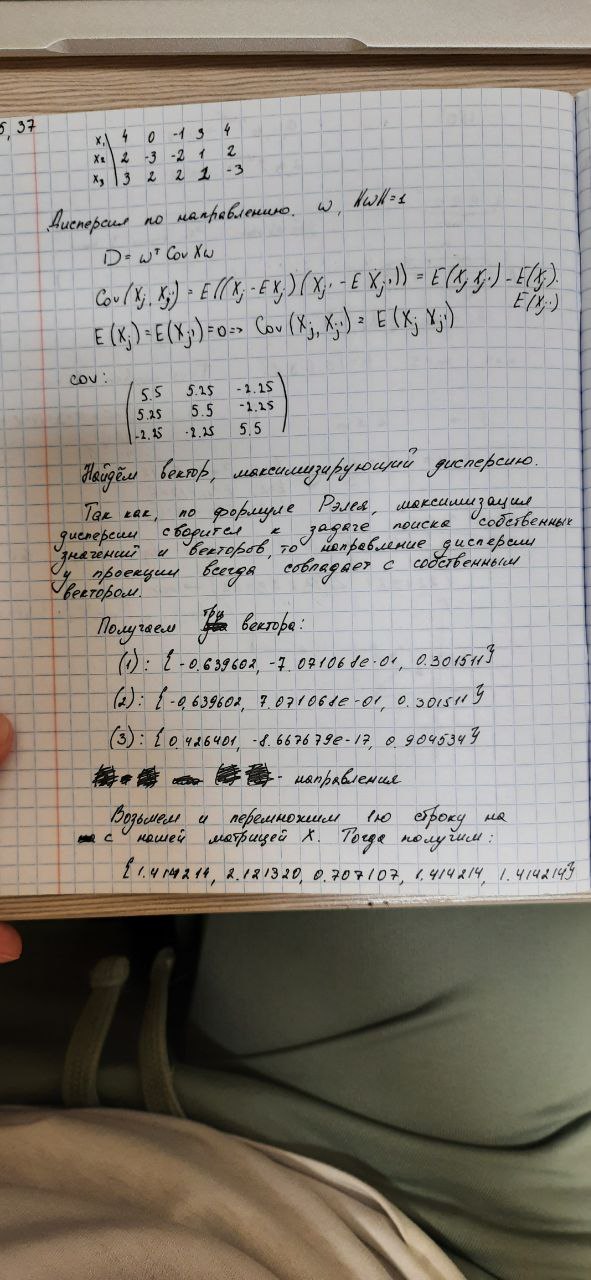 5, 37
x₁ | 4 0 -1 3 4
x₂ | 2 -3 -2 1 2
x₃ | 3 2 2 1 -3
Дисперсия по направлению. ω, ‖ω‖=1
D = ωᵀ Cov Xω
Cov(Xj, Xj') = E((Xj - EXj)(Xj' - EXj')) = E(Xj Xj') - E(Xj).
E(Xj')
E(Xj) = E(Xj') = 0 => Cov(Xj, Xj') = E(Xj Xj')
cov:
5.5 5.25 -2.25
5.25 5.5 -2.25
-2.25 -2.25 5.5
Найдём вектор, максимизирующий дисперсию.
Так как, по формуле Рэлея, максимизация
дисперсии сводится к задаче поиска собственных
значений и векторов, то направление дисперсии
у проекции всегда совпадает с собственным
вектором.
Получаем три вектора:
(1): {-0.639602, -7.071068e-01, 0.301511}
(2): {-0,639602, 7.071068e-01, 0.301511}
(3): {0,426401, -8.667679e-17, 0.904534}
- направления
Возьмем и перемножим 1ю строку на
с нашей матрицей X. Тогда получим:
{1.414214, 2.121320, 0.707107, 1.414214, 1.414214}